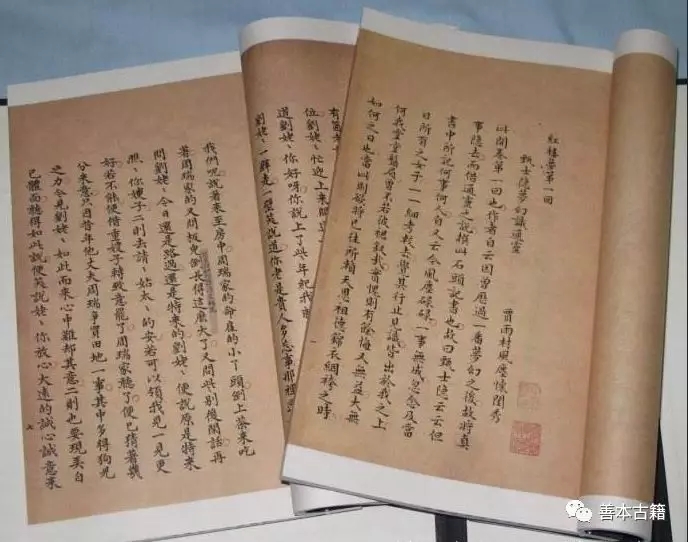 紅樓夢第一回
甄士隱夢幻識通靈
賈雨村風塵懷閨秀
此開卷第一回也作者自云因曾歷過一番夢幻之後故將真
事隱去而借通靈之說撰此石頭記書也故曰甄士隱云云但
書中所記何事何人自又云今風塵碌碌一事無成忽念及當
日所有之女子一一細考較去覺其行止見識皆出於我之上
何我堂堂鬚眉曾不若彼裙釵哉實愧則有餘悔又無益大無
如何之日也當此則欲將已往所賴天恩祖德錦衣紈褲之時
有箇
位劉姥丶忙迎上來問
道劉姥丶你好呀你說上了些年紀我
劉姥丶一壁走一壁笑說道你老是貴人多忘事那裡
我們呢說著來至房中周瑞家的命雇的小丫頭倒上茶來吃
著周瑞家的又問板兒倒長得這麼大了又問些別後閒話再
問劉姥丶今日還是路過還是特來的劉姥丶便說原是特來
瞧丶你嫂子二則去請丶姑太丶的安若可以領我見一見更
好若不能便借重嫂子轉致意罷了周瑞家聽了便已猜著幾
分來意只因昔年他丈夫周瑞爭買田地一事其中多得狗兒
之力今見劉姥丶如此而來心中難却其意二則也要現美自
己體面聽得如此說便笑說姥丶你放心大遠的誠心誠意來
七
善本古籍